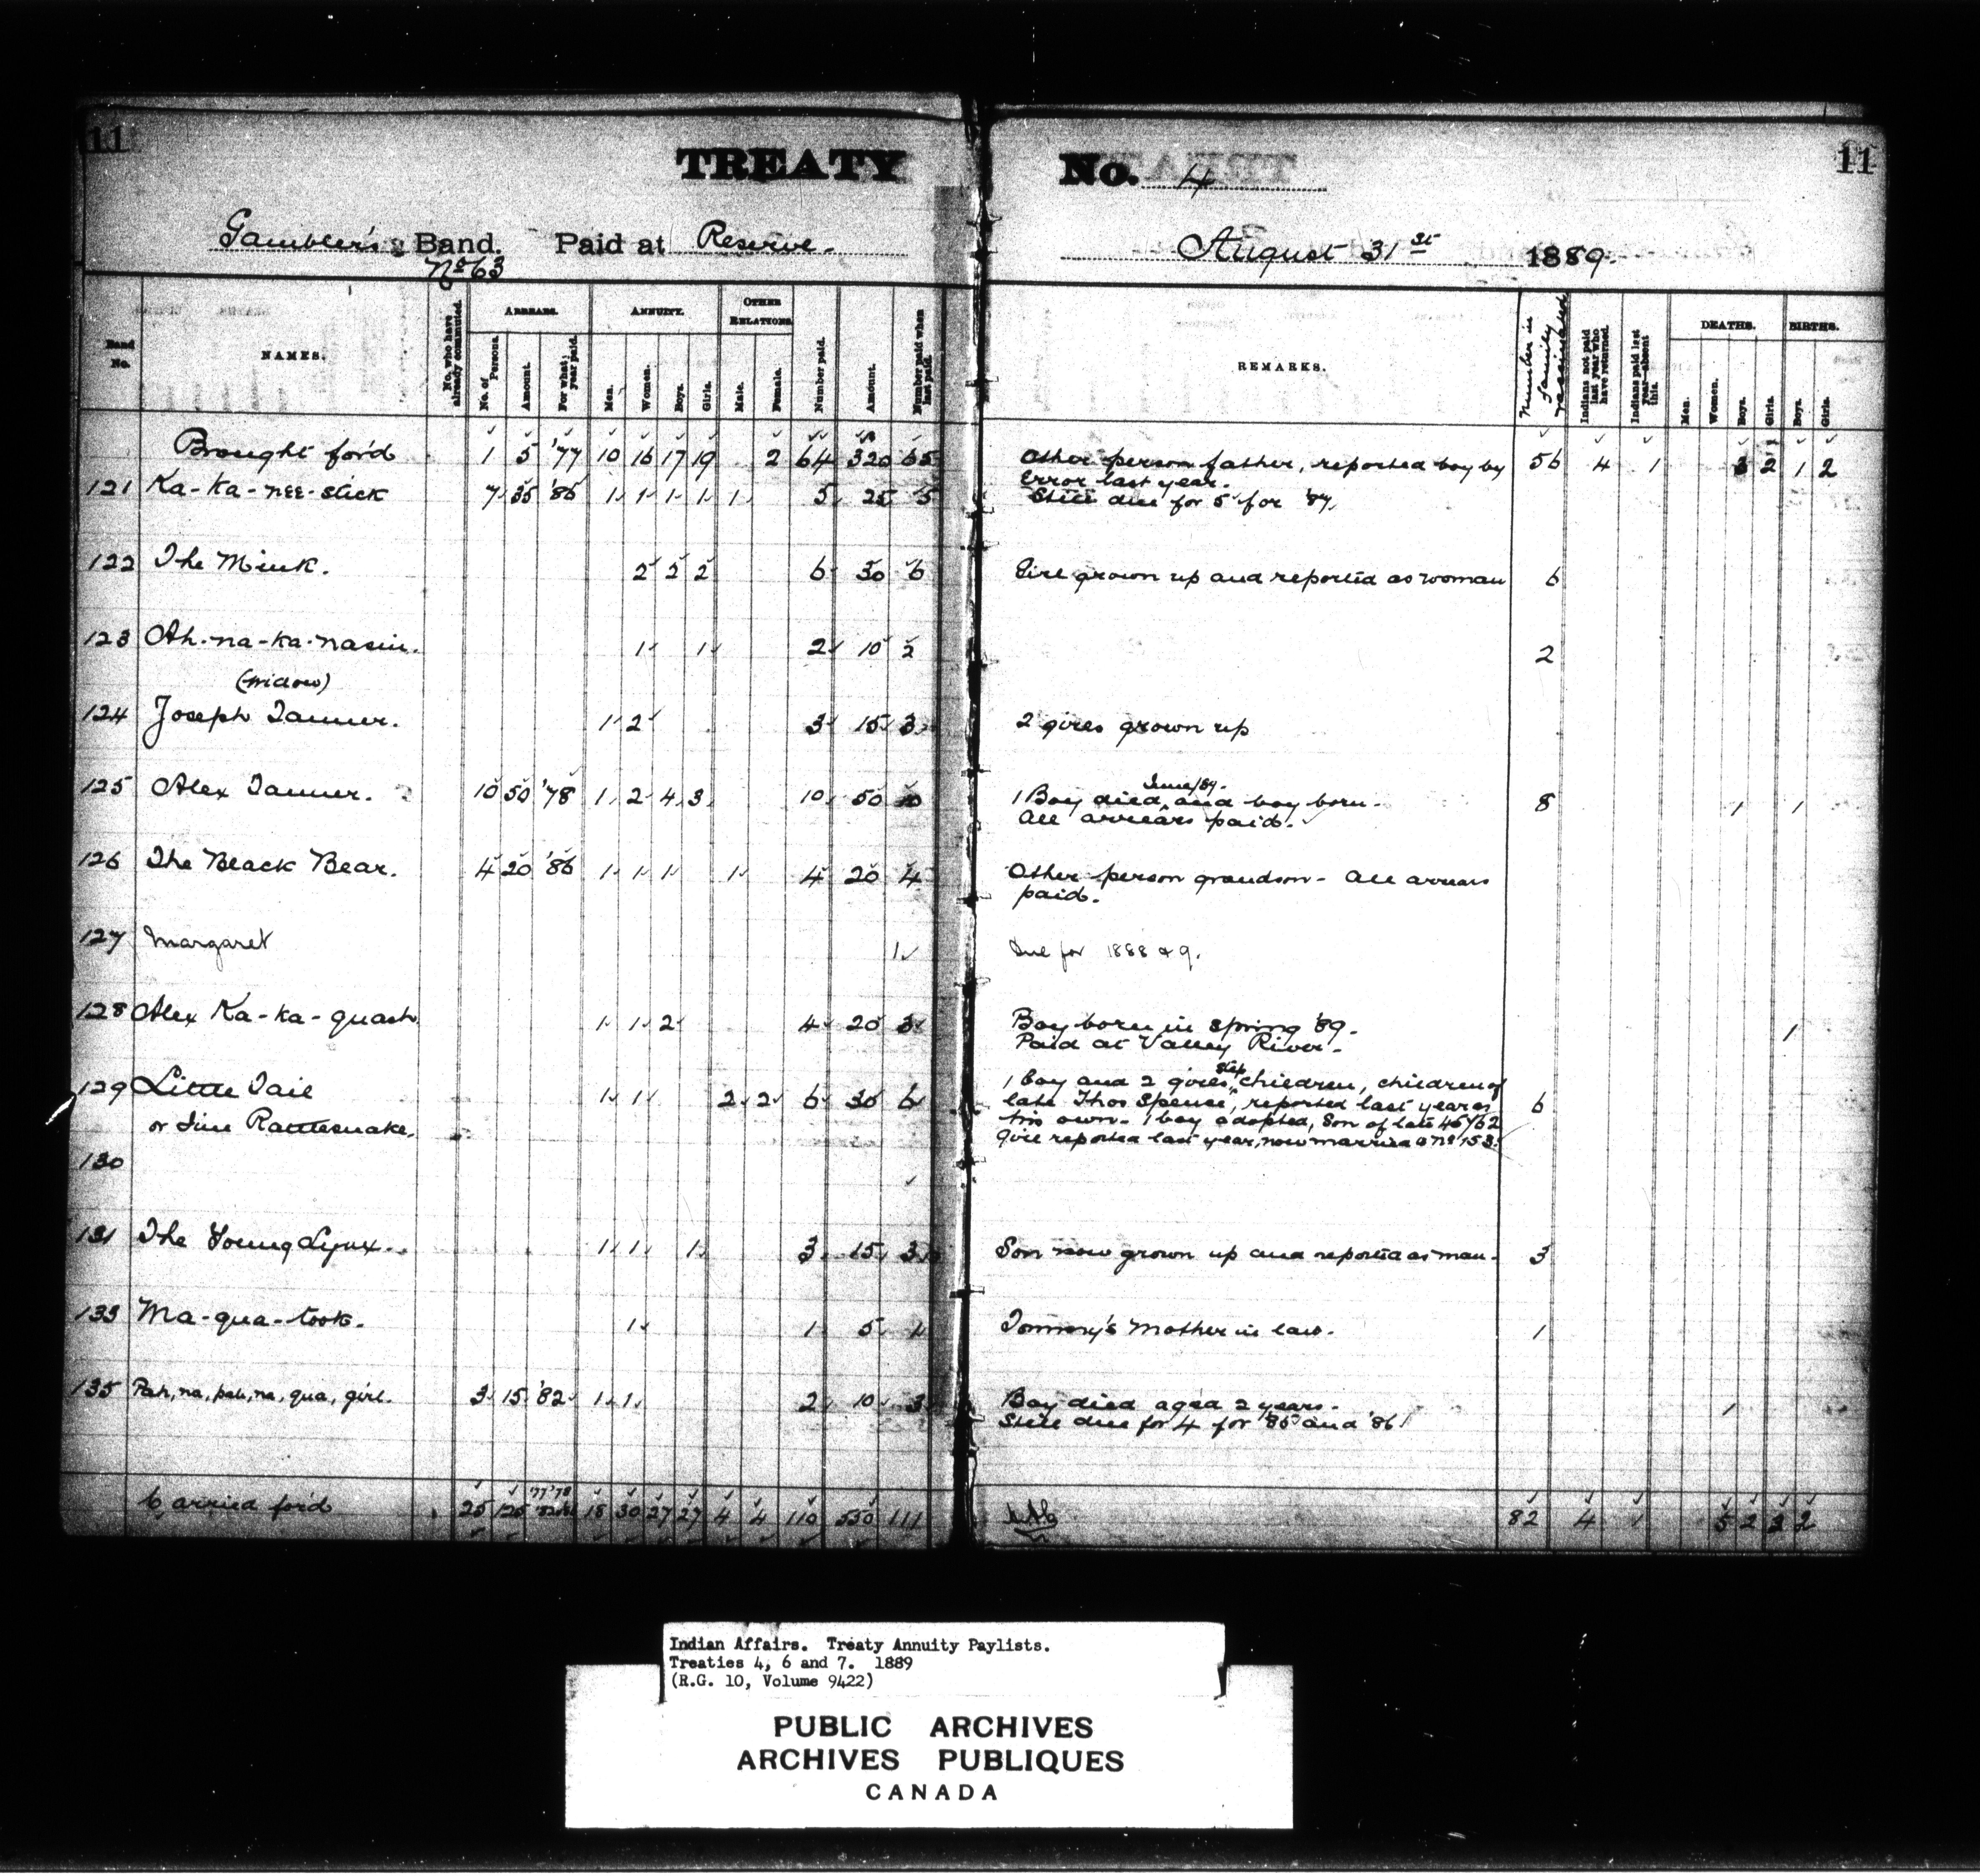 11
TREATY No. 4
11
Gambler's Band. Paid at Reserve. August 31st 1889.
No 63
Band No.
NAMES.
No. who have already commuted.
ARREARS.
No. of Persons.
Amount.
For what year paid.
ANNUITY.
Men.
Women.
Boys.
Girls.
OTHER RELATIONS.
Male.
Female.
Number paid.
Amount.
Number paid when last paid.
REMARKS.
Number in family vaccinated
Indians not paid last year who have returned.
Indians paid last year—absent this.
DEATHS.
Men.
Women.
Boys.
Girls.
BIRTHS.
Boys.
Girls.
Brought for'd 1 5 '77 10 16 17 19 2 64 320 65 56 4 1 3 2 1 2
121 Ka-ka-nee-stick 7 35 '86 1 1 1 1 1 5 25 5 Other person father, reported boy by
Error last year.
Still due for 5 for '87.
122 The Mink. 2 2 2 6 30 6 Girl grown up and reported as woman 6
123 Ah-na-ka-nasin. 1 1 2 10 2 2
(widow)
124 Joseph Tanner. 1 2 3 15 3 2 girls grown up
125 Alex Tanner. 10 50 '78 1 2 4 3 10 50 10 1 Boy died June/89. and boy born. 8 1 1
All arrears paid.
126 The Black Bear. 4 20 '86 1 1 1 1 4 20 4 Other person grandson - All arrears
paid.
127 Margaret 1 Due for 1888 & 9.
128 Alex Ka-ka-quash 1 1 2 4 20 3 Boy born in Spring '89. 1
Paid at Valley River.
129 Little Tail 1 1 2 2 6 30 6 1 boy and 2 girls, step children, children of
late Thos Spence, reported last year as 6
or Jim Rattlesnake. his own. 1 boy adopted, Son of late 45/62
Girl reported last year, now married a No 153.
130
131 The Young Lynx. 1 1 1 3 15 3 Son now grown up and reported as man. 3
133 Ma-qua-took. 1 1 5 1 Tommy's Mother in law. 1
135 Pah,na,pah,na,qua, girl. 3 15 '82 1 1 2 10 3 Boy died aged 2 years. 1
Still due for 4 for '85 and '86
Carried for'd 25 125 '77 '78 '82 '86 15 30 27 27 4 4 110 550 111 82 4 1 5 2 3 2
Indian Affairs. Treaty Annuity Paylists.
Treaties 4, 6 and 7. 1889
(R.G. 10, Volume 9422)
PUBLIC ARCHIVES
ARCHIVES PUBLIQUES
CANADA